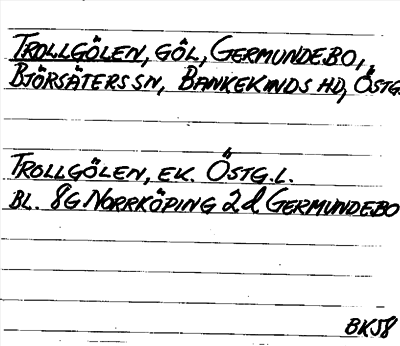 TROLLGÖLEN, GÖL, GERMUNDEBO,
BJÖRSÄTERS SN, BANKEKINDS HD, ÖSTG.
TROLLGÖLEN, EK. ÖSTG.L.
BL. 8G NORRKÖPING 2d GERMUNDEBO
BK58